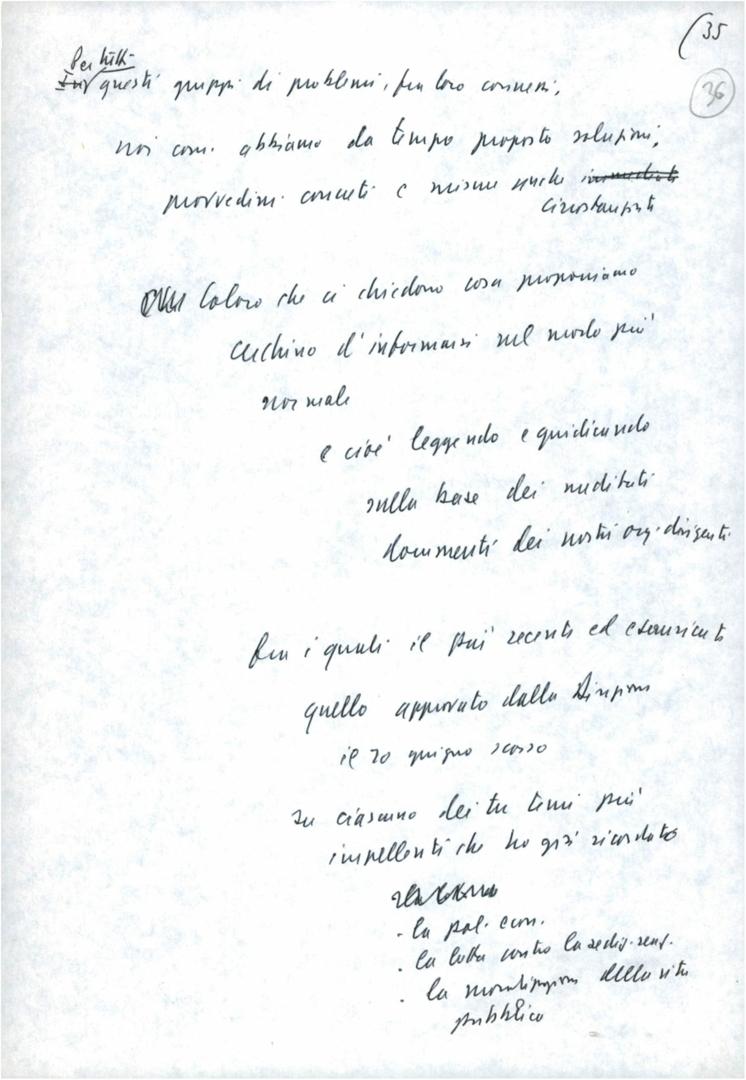 (35
36
Per tutti
questi gruppi di problemi, fra loro connessi,
noi com. abbiamo da tempo proposto soluzioni,
provvedim. concreti e misure anche immediate
circostanziati
Coloro che ci chiedono cosa proponiamo
cerchino d'informarsi nel modo più
normale
e cioè leggendo e giudicando
sulla base dei meditati
documenti dei nostri org. dirigenti
fra i quali il più recente ed esauriente
quello approvato dalla Direzione
il 20 giugno scorso
su ciascuno dei tre temi più
impellenti che ho già ricordato
- la pol. econ.
- la lotta contro la sediz. reaz.
- la moralizzazione della vita
pubblica